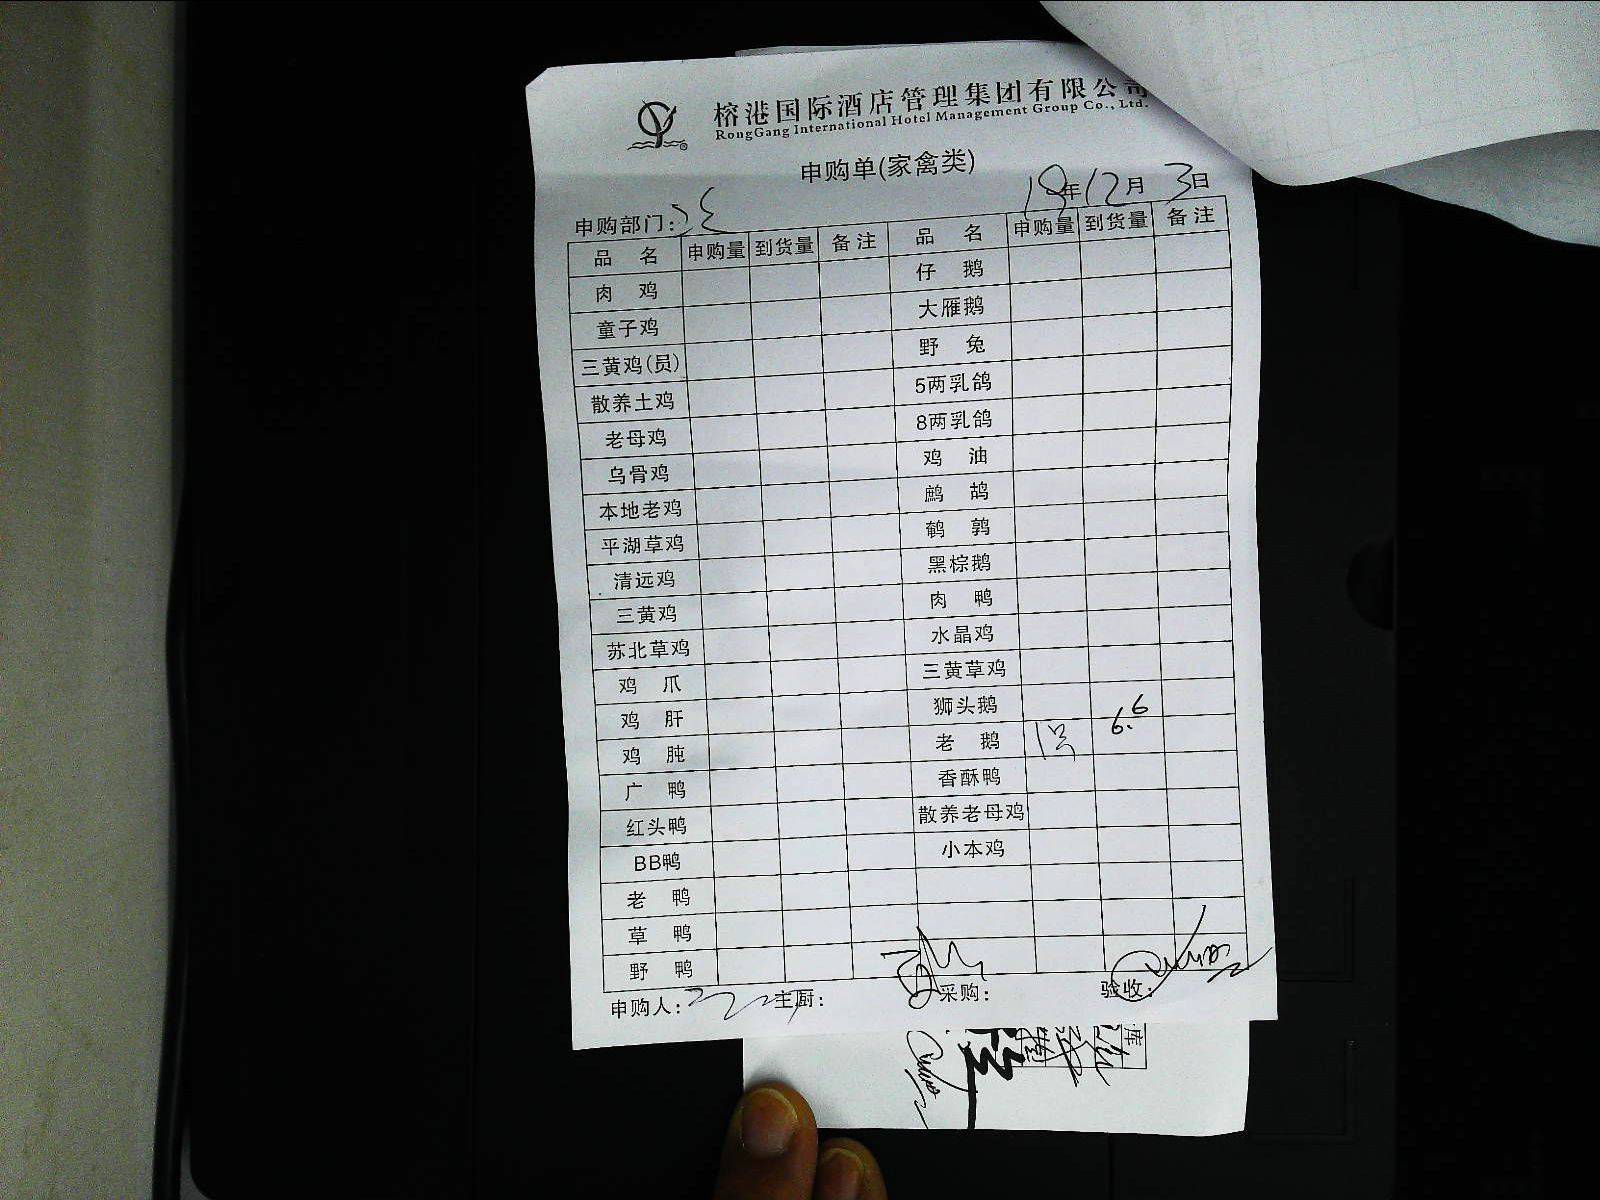 榕港国际酒店管理集团有限公司
RongGang International Hotel Management Group Co., Ltd.
申购单(家禽类)
申购部门: 18年12月3日
品 名 申购量 到货量 备注 品 名 申购量 到货量 备注
肉 鸡 仔 鹅
童子鸡 大雁鹅
三黄鸡(员) 野 兔
散养土鸡 5两乳鸽
老母鸡 8两乳鸽
乌骨鸡 鸡 油
本地老鸡 鹧 鸪
平湖草鸡 鹌 鹑
清远鸡 黑棕鹅
三黄鸡 肉 鸭
苏北草鸡 水晶鸡
鸡 爪 三黄草鸡
鸡 肝 狮头鹅
鸡 肫 老 鹅 1只 6.6
广 鸭 香酥鸭
红头鸭 散养老母鸡
BB鸭 小本鸡
老 鸭
草 鸭
野 鸭
申购人: 主厨: 采购: 验收:
库